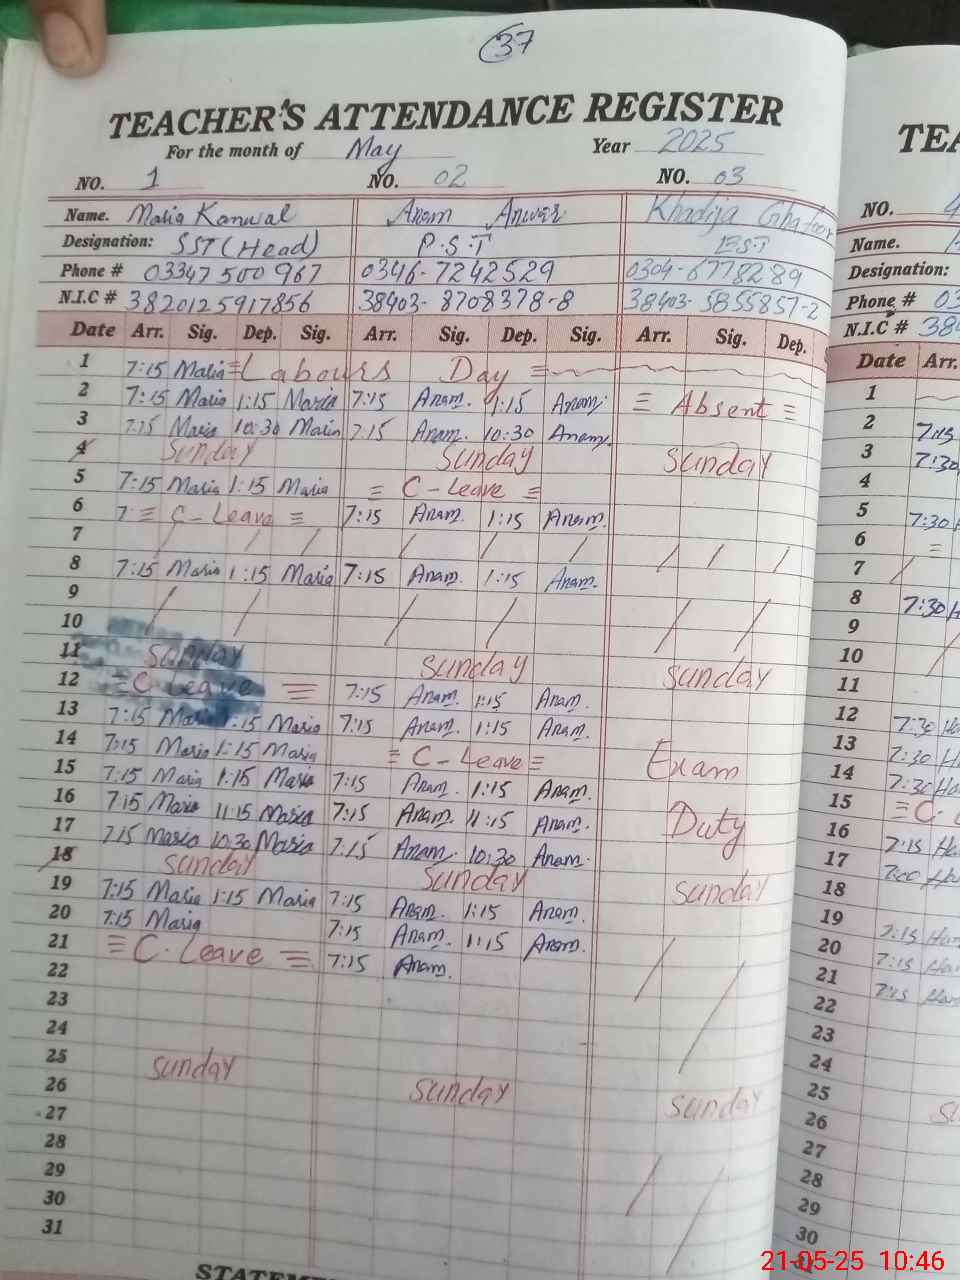 37
TEACHER'S ATTENDANCE REGISTER
For the month of May Year 2025
NO. 1 NO. 02 NO. 03
Name. Maria Kanwal Anam Anwar Khadija Ghafoor
Designation: SST (Head) P.S.T
Phone # 03347500967 0346-7242529 0304-6778289
N.I.C # 3820125917856 38403-8708378-8 38403-5855857-2
Date Arr. Sig. Dep. Sig. Arr. Sig. Dep. Sig. Arr. Sig. Dep.
1 7:15 Maria Labours Day
2 7:15 Maria 1:15 Maria 7:15 Anam. 1:15 Anam. Absent
3 7:15 Maria 10:30 Maria 7:15 Anam. 10:30 Anam.
4 Sunday Sunday Sunday
5 7:15 Maria 1:15 Maria C-Leave
6 7 C-Leave 7:15 Anam. 1:15 Anam.
7
8 7:15 Maria 1:15 Maria 7:15 Anam. 1:15 Anam.
9
10
11 Sunday Sunday Sunday
12 C-Leave 7:15 Anam. 1:15 Anam.
13 7:15 Maria 1:15 Maria 7:15 Anam. 1:15 Anam.
14 7:15 Maria 1:15 Maria C-Leave Exam
15 7:15 Maria 1:15 Maria 7:15 Anam. 1:15 Anam.
16 7:15 Maria 11:15 Maria 7:15 Anam. 11:15 Anam. Duty
17 7:15 Maria 10:30 Maria 7:15 Anam. 10:30 Anam.
18 Sunday Sunday Sunday
19 7:15 Maria 1:15 Maria 7:15 Anam. 1:15 Anam.
20 7:15 Maria 7:15 Anam. 1:15 Anam.
21 C.Leave 7:15 Anam.
22
23
24
25 Sunday Sunday Sunday
26
27
28
29
30
31
NO.
Name.
Designation:
Phone # 03
N.I.C # 384
Date Arr.
1
2 7:15
3 7:30
4
5 7:30
6
7
8 7:30
9
10
11
12 7:30
13 7:30
14 7:30
15 C.
16 7:15
17 7:00
18
19 7:15
20 7:15
21 7:15
22
23
24
25
26
27
28
29
30
21-05-25 10:46